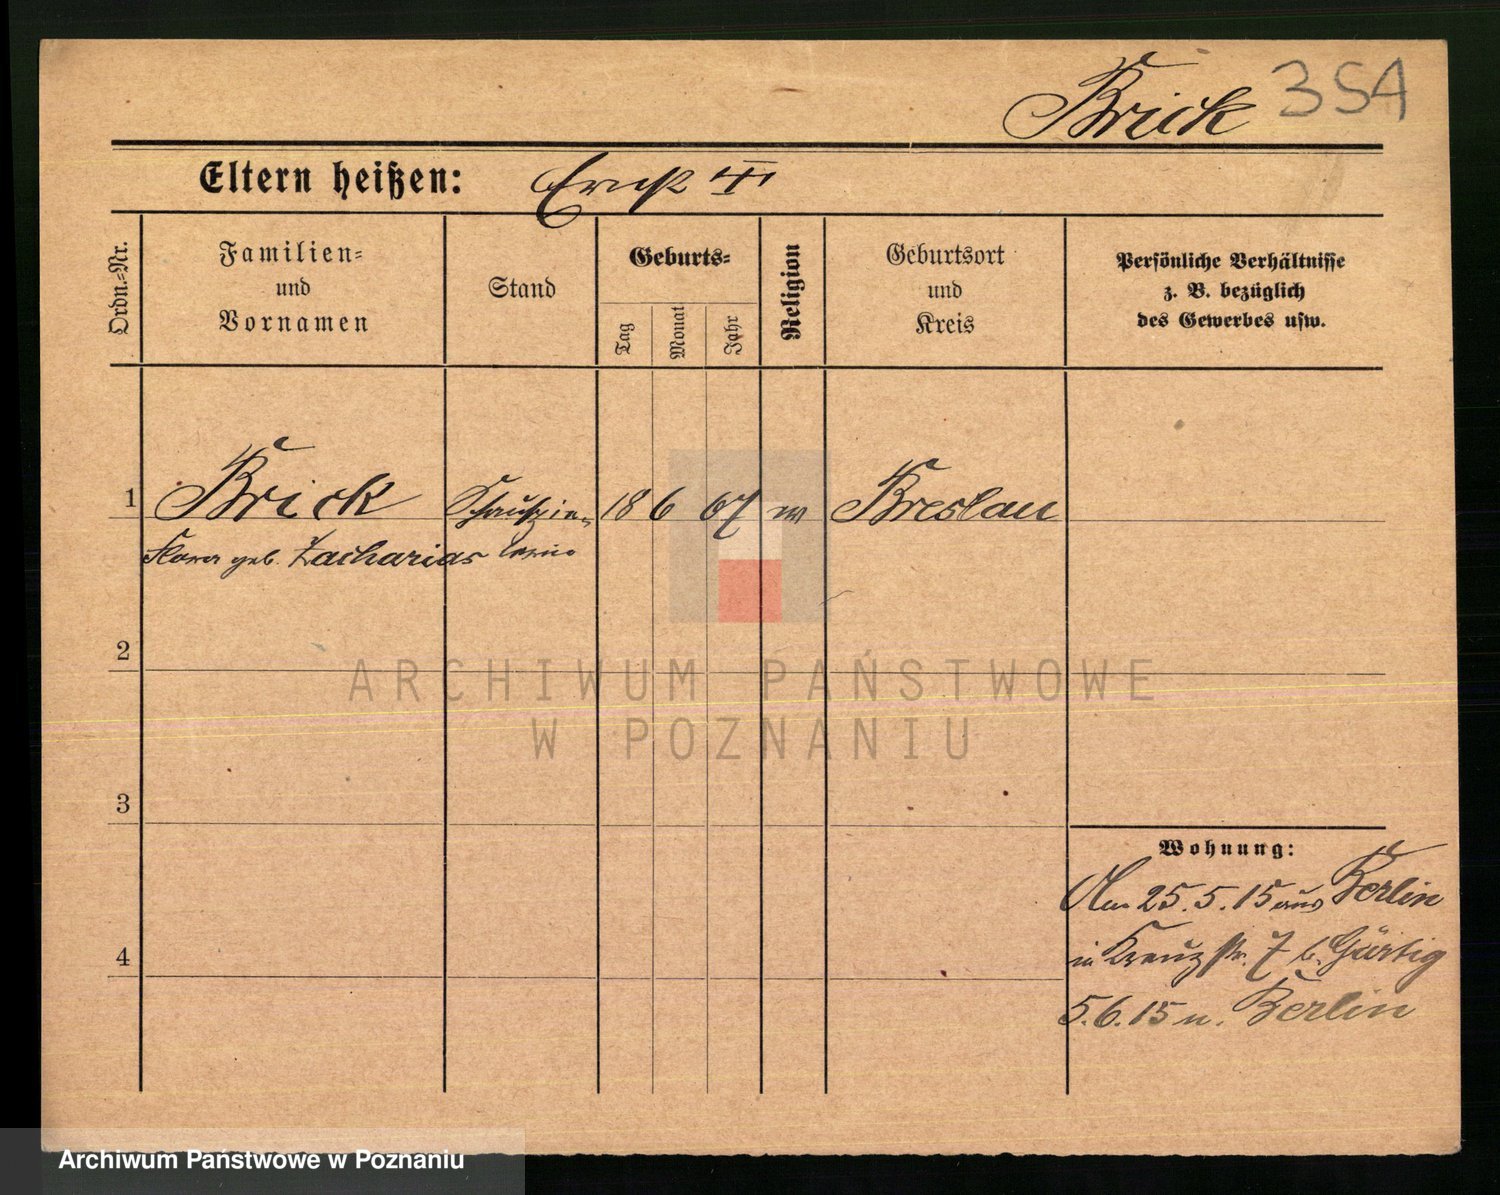 Brick 354
Eltern heißen: Ernst II
Ordn.-Nr.
Familien=
und
Vornamen
Stand
Geburts=
Tag
Monat
Jahr
Religion
Geburtsort
und
Kreis
Persönliche Verhältnisse
z. B. bezüglich
des Gewerbes usw.
1 Brick Schauspie= 18 6 67 m Breslau
geb. Zacharias lerin
2
3
4
Wohnung:
Am 25.5.15 aus Berlin
in Kreuzstr. 7 b. Gürtig
5.6.15 n. Berlin
ARCHIWUM PAŃSTWOWE
W POZNANIU
Archiwum Państwowe w Poznaniu